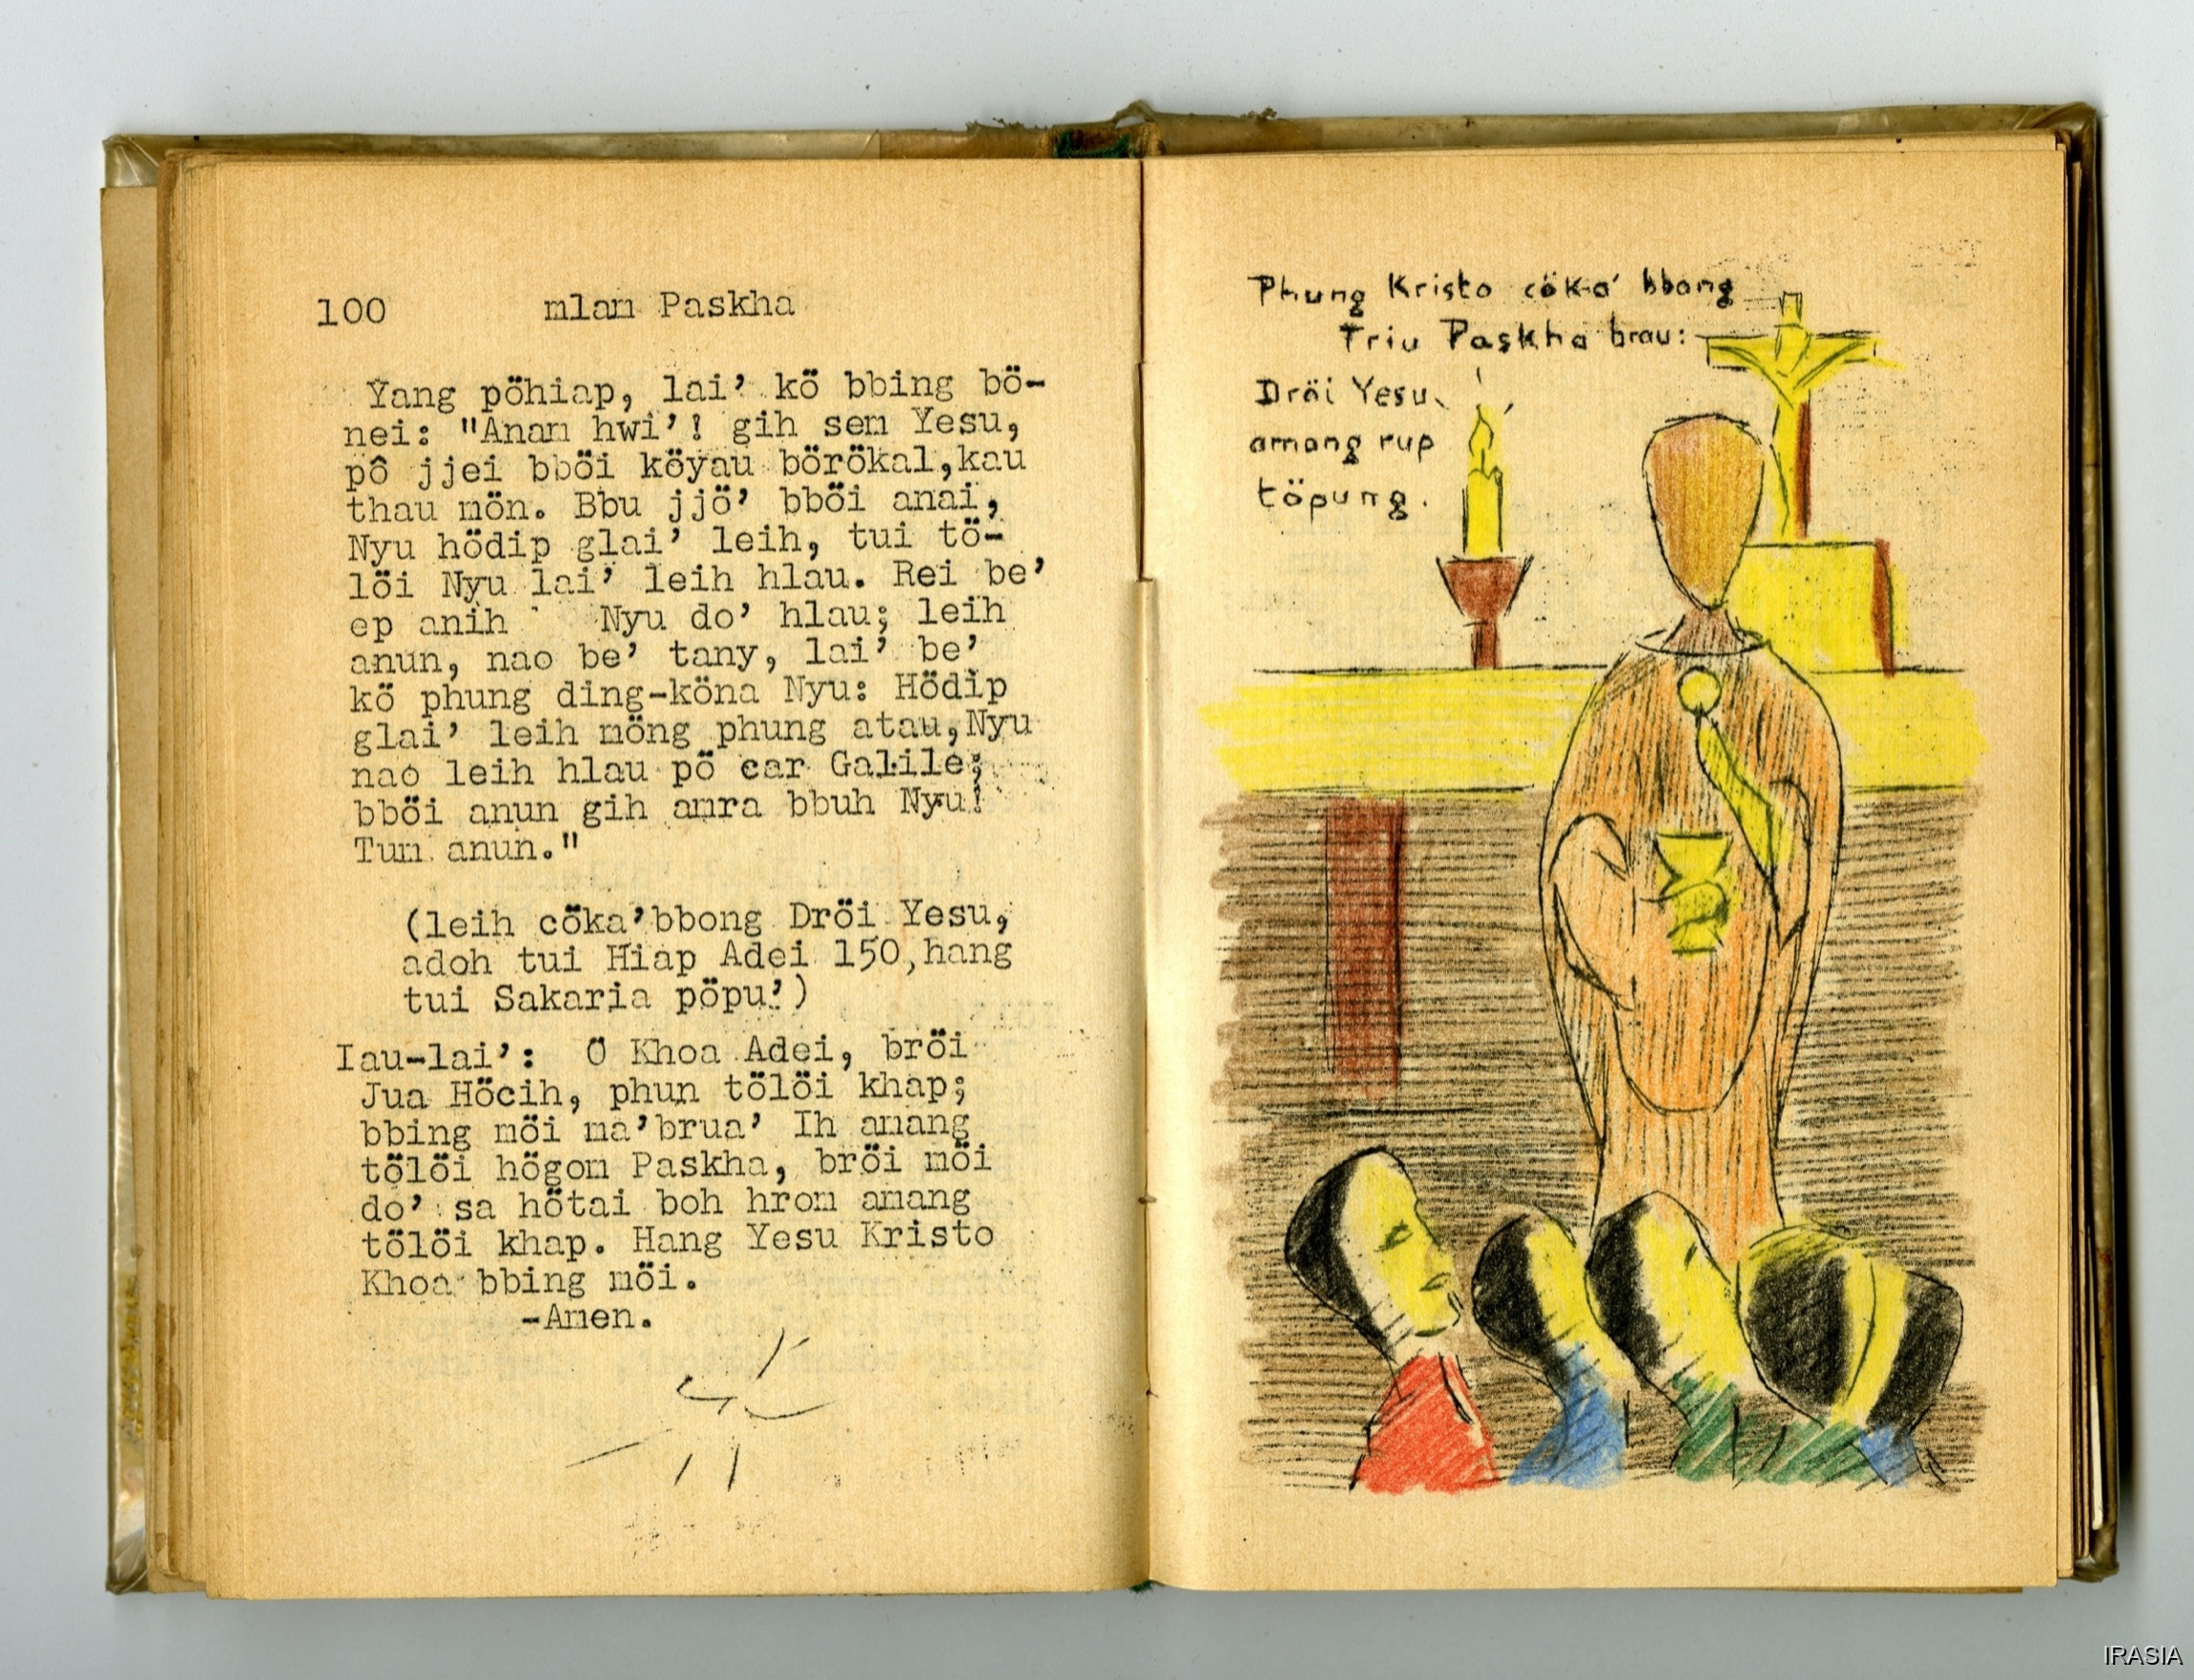 100 mlam Paskha
Yang pöhiap, lai' kö bbing bö-
nei: "Anam hwi'! gih sem Yesu,
pô jjei bböi köyau börökal,kau
thau mön. Bbu jjö' bböi anai,
Nyu hödip glai' leih, tui tö-
löi Nyu lai' leih hlau. Rei be'
ep anih Nyu do' hlau; leih
anun, nao be' tany, lai' be'
kö phung ding-köna Nyu: Hödip
glai' leih möng phung atau,Nyu
nao leih hlau pö car Galile;
bböi anun gih amra bbuh Nyu!
Tum anun."
(leih cöka'bbong Dröi Yesu,
adoh tui Hiap Adei 150,hang
tui Sakaria pöpu')
Iau-lai': Ö Khoa Adei, bröi
Jua Höcih, phun tölöi khap;
bbing möi ma'brua' Ih amang
tölöi högom Paskha, bröi möi
do' sa hötai boh hrom amang
tölöi khap. Hang Yesu Kristo
Khoa bbing möi.
-Amen.
Phung Kristo cöka' bbong
Triu Paskha brau:
Dröi Yesu
amang rup
töpung.
IRASIA